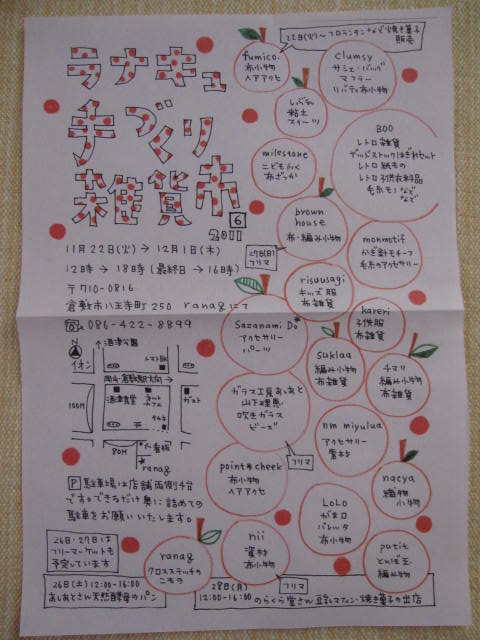 ラナキュ
手づくり
雑貨市
6
2011
11月22日(火)→12月1日(木)
12時→18時(最終日→16時)
〒710-0816
倉敷市八王寺町250 ranagにて
086-422-8899
イオン
トマト銀
岡山・倉敷駅方向→
酒津食堂
ネットカフェ
ガスト
タルキ
100M
80M
看板
ranag
P 駐車場は店舗両側4台
です。できるだけ奥に詰めての
駐車をお願いいたします。
26日・27日は
フリーマーケットも
予定しています
26日(土)12:00-16:00
あしあとさん天然酵母のパン
22日(火)〜フロランタンなど焼き菓子
販売
fumico.
布小物
ヘアアクセ
clumsy
サシェ・バッグ
マフラー
リバティ布小物
しばた
粘土
スイーツ
BOO
レトロ雑貨
デッドストックはぎれセット
レトロ紙もの
レトロ子供衣料品
毛糸モノなど
など
milestone
こどもふく
布ざっか
brown
house
布・編み小物
27日(日)
フリマ
monmotif
かぎ針モチーフ
毛糸のアクセサリー
risuusagi
キッズ服
布雑貨
kareri
子供服
布雑貨
Sazanami Do*
アクセサリー
パーツ
suklaa
編み小物
布雑貨
チマリ
編み小物
布雑貨
ガラス工房あしあと
山下理恵
吹きガラス
ビーズ
フリマ
nm miyulua
アクセサリー
素材
point*cheek
布小物
ヘアアクセ
nacya
編物
小物
LoLo
がま口
バレッタ
布小物
nii
資材
布小物
putit
とんぼ玉
編み小物
ranag
クロスステッチの
こもの
28日(月)
フリマ
12:00-16:00 のらくら堂さん 豆乳マフィン・焼き菓子の出店